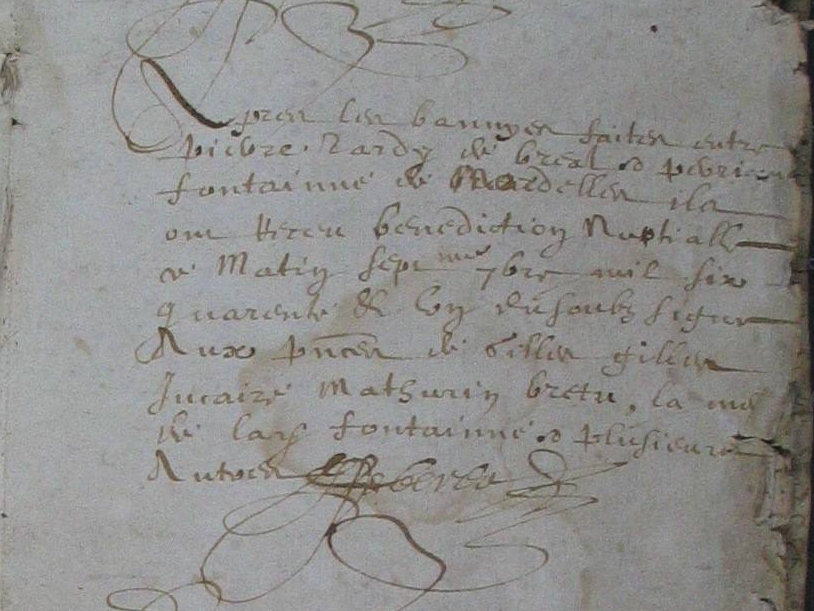 Apres les bannyes faites entre
pierre Tardy de breal & perrine
fontainne de Mordelles ils
ont Receu benediction Nuptialle
ce Matin sept^me 7bre mil six
quarente & un du soubz signe
Aux pñces de Gilles gilles
Mathurin bretu, la me
de lad fontainne & plusieurs
Autres